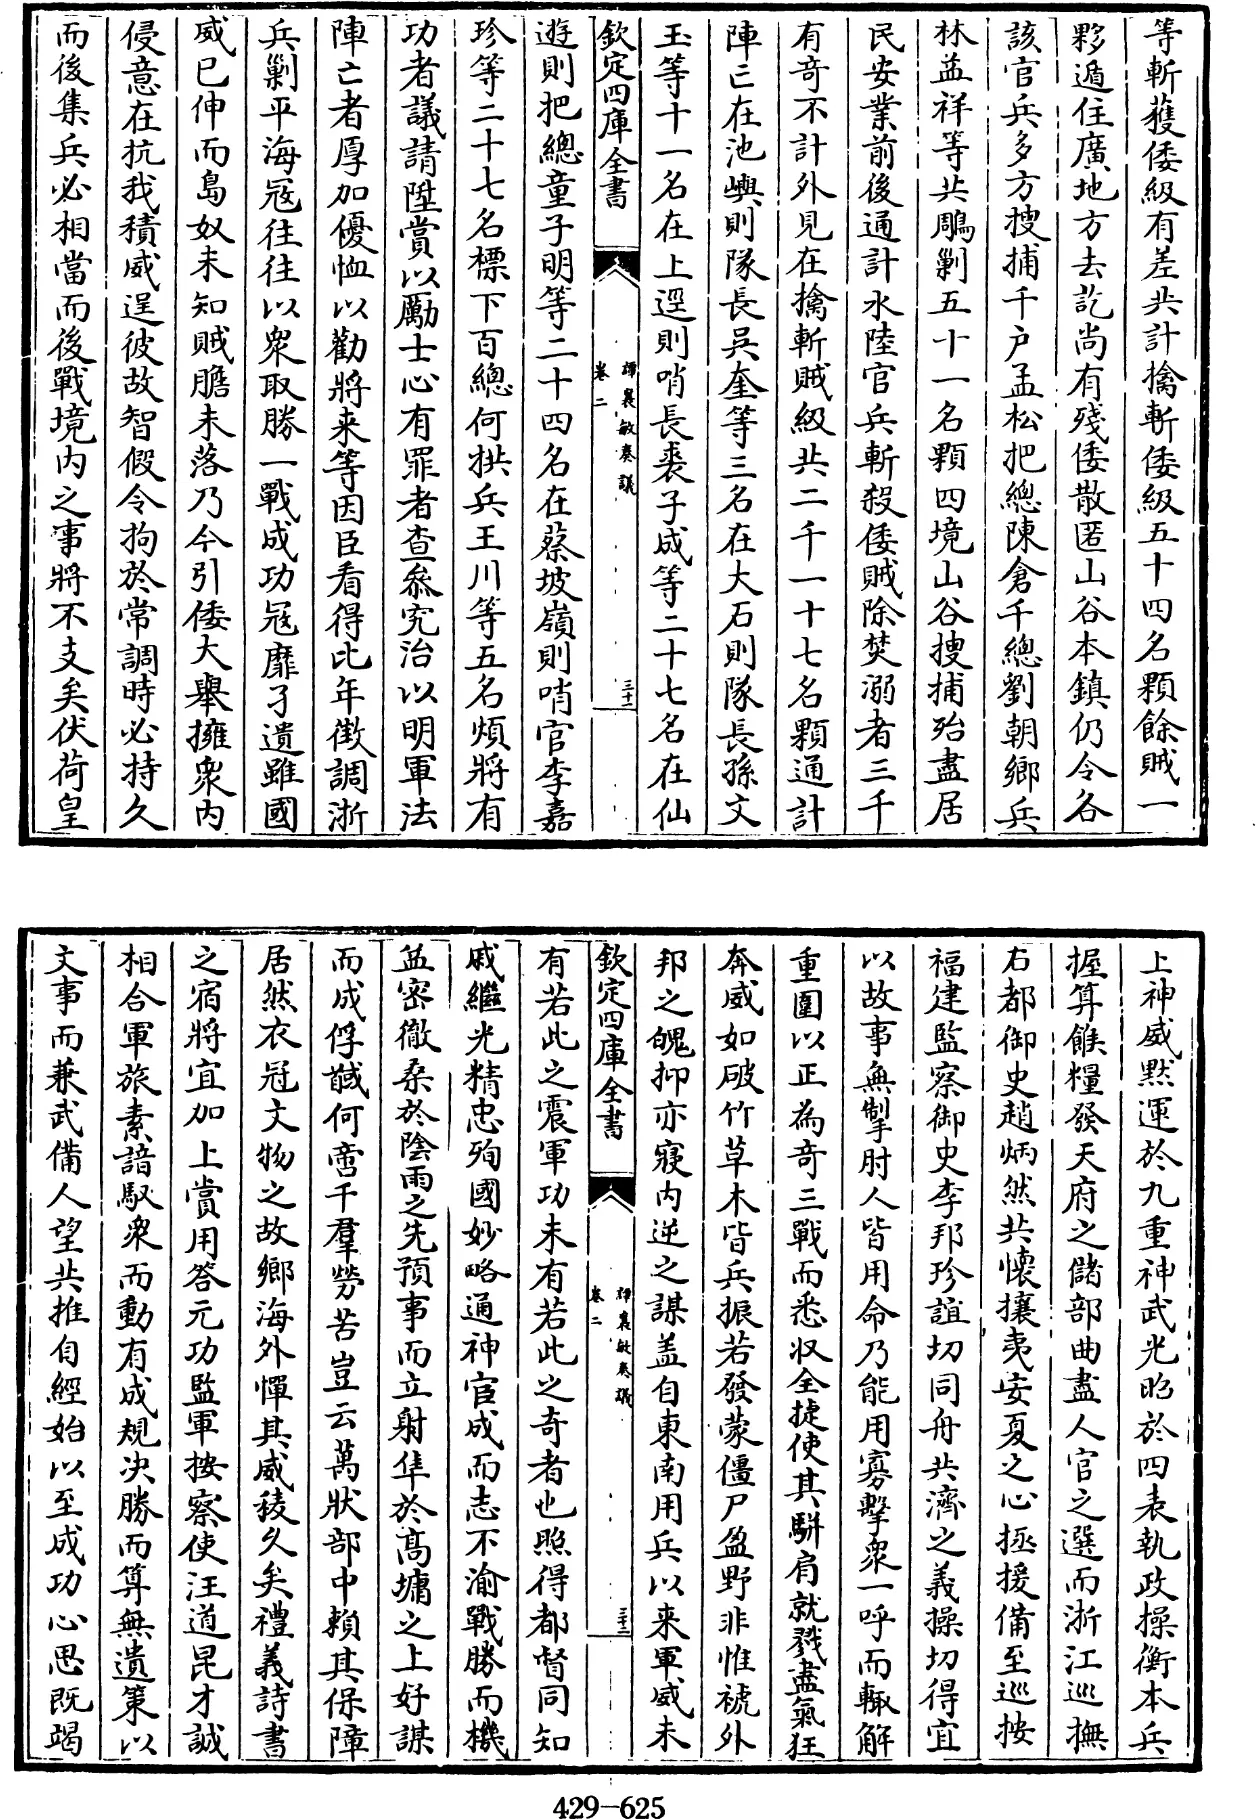 等斬獲倭級有差共計擒斬倭級五十四名顆餘賊一
夥遁住廣地方去訖尚有殘倭散匿山谷本鎮仍令各
該官兵多方搜捕千户孟松把總陳倉千總劉朝鄉兵
林益祥等共鵰剿五十一名顆四境山谷搜捕殆盡居
民安業前後通計水陸官兵斬殺倭賊除焚溺者三千
有奇不計外見在擒斬賊級共二千一十七名顆通計
陣亡在池嶼則隊長吳奎等三名在大石則隊長孫文
玉等十一名在上逕則哨長裘子成等二十七名在仙
欽定四庫全書
譚襄敏奏議
卷二
三十一
遊則把總童子明等二十四名在蔡坡嶺則哨官李嘉
珍等二十七名標下百總何拱兵王川等五名煩將有
功者議請陞賞以勵士心有罪者查叅究治以明軍法
陣亡者厚加優恤以勸將来等因臣看得比年徴調浙
兵剿平海冦往往以衆取勝一戰成功冦靡孑遺雖國
威已伸而島奴未知賊膽未落乃今引倭大舉擁衆内
侵意在抗我積威逞彼故智假令拘於常調時必持久
而後集兵必相當而後戰境内之事將不支矣伏荷皇
上神威黙運於九重神武光昭於四表執政操衡本兵
握算餱糧發天府之儲部曲盡人官之選而浙江巡撫
右都御史趙炳然共懷攘夷安夏之心拯援備至巡按
福建監察御史李邦珍誼切同舟共濟之義操切得宜
以故事無掣肘人皆用命乃能用寡擊衆一呼而輙解
重圍以正為奇三戰而悉収全捷使其駢肩就戮盡氣狂
奔威如破竹草木皆兵振若發蒙僵尸盈野非惟褫外
邦之魄抑亦寢内逆之謀盖自東南用兵以来軍威未
欽定四庫全書
譚襄敏奏議
卷二
三十二
有若此之震軍功未有若此之奇者也照得都督同知
戚繼光精忠殉國妙略通神官成而志不渝戰勝而機
益密徹桑於陰雨之先預事而立射隼於髙墉之上好謀
而成俘馘何啻千羣勞苦豈云萬狀部中賴其保障
居然衣冠文物之故鄉海外憚其威稜久矣禮義詩書
之宿將宜加上賞用答元功監軍按察使汪道昆才誠
相合軍旅素諳馭衆而動有成規决勝而算無遺策以
文事而兼武備人望共推自經始以至成功心思既竭
429-625